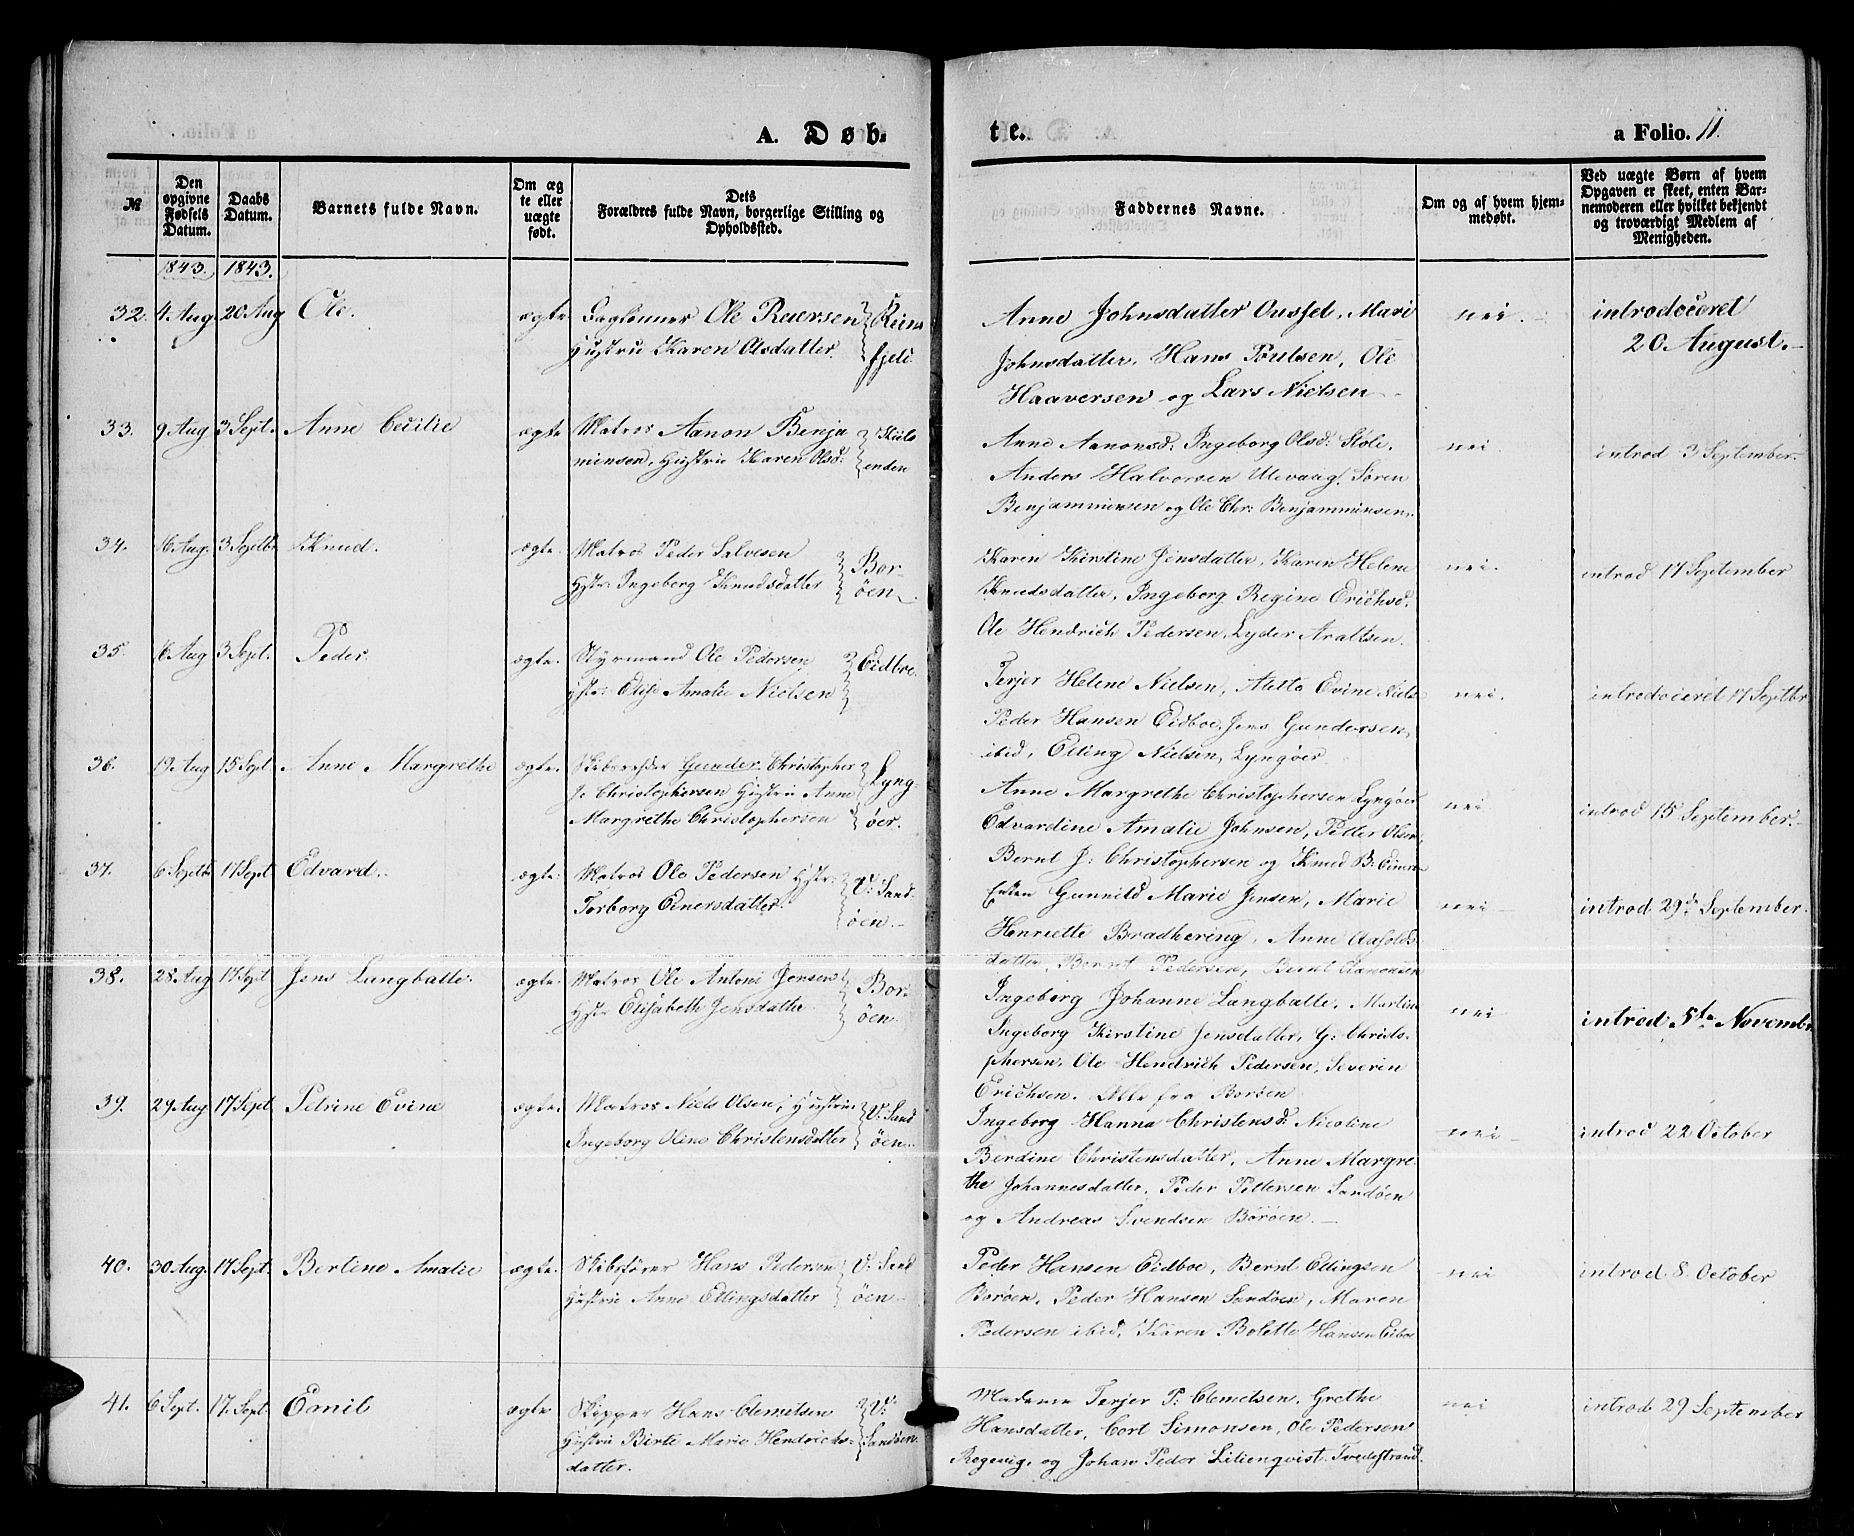 A. Døb-
te.
a Folio. 11.
№
Den opgivne Fødsels Datum.
Daabs Datum.
Barnets fulde Navn.
Om ægte eller uægte født.
Dets Forældres fulde Navn, borgerlige Stilling og Opholdssted.
Faddernes Navne.
Om og af hvem hjemmedøbt.
Ved uægte Børn af hvem Opgaven er skeet, enten Barnemoderen eller hvilket bekjendt og troværdigt Medlem af Menigheden.
1843. 1843.
32. 4 Aug 20 Aug Ole. ægte
Ole Reiersen
Hustru Karen Olsdatter.
Anne Johnsdatter Ousset, Mari
Johnsdatter, Hans Poulsen, Ole
Haaversen og Lars Nielsen
nei.
introduceret
20 August.
33. 9 Aug 3 Sept. Anne Cecilie ægte
Matros Aanon Benja
minsen, Hustrue Karen Olsd:
Anne Aanonsd: Ingeborg Olsd: Støle,
Anders Halvorsen Ulevaag, Søren
Benjaminsen og Ole Chr: Benjaminsen.
nei.
introd 3 September.
34. 6 Aug. 3 Septbr Knud. ægte.
Matros Peder Salvesen
Hstr: Ingeborg Knudsdatter
Bor-
øen.
Karen Kirstine Jensdatter, Karen Helene
Knudsdatter, Ingeborg Regine Erichsd.
Ole Hendrich Pedersen, Lyder Araltsen.
nei.
introd 17 September
35. 6 Aug 3 Sept. Peder. ægte.
Styrmand Ole Pedersen
Hstr: Elise Amalie Nielsen
Eidboe.
Terjer Helene Nielsen, Alette Evine Niels
Peder Hansen Eidboe, Jens Gundersen
ibid, Elling Nielsen, Lyngøer
nei.
introduceret 17 Septbr
36. 19 Aug 15 Sept Anne Margrethe ægte.
Skibsreder Gunder Christopher
J. Christophersen Hustru Anne
Margrethe Christophersen
Lyng-
øer.
Anne Margrethe Christophersen Lyngøer
Edvardine Amalie Johnsen, Petter Olsen
Bernt J: Christophersen og Knud B:
nei.
introd 15 September.
37. 6 Septbr 17 Sept Edvard. ægte.
Matros Ole Pedersen Hstr:
Torborg Einersdatter.
V: Sand-
øen.
Enken Gunnild Marie Jensen, Marie
Henriette Bradhering, Anne Aasolds
datter, Bernt Pedersen, Bernt Aanonsen
nei
introd 29de September.
38. 28 Aug 17 Sept Jens Langballe. ægte.
Matros Ole Antoni Jensen
Hstr Elisabeth Jensdatter
Bor-
øen
Ingeborg Johanne Langballe, Martine
Ingeborg Kirstine Jensdatter, G: Christo-
phersen, Ole Hendrich Pedersen, Severin
Erichsen. Alle fra Borøen
nei
introd 5te Novembr
39. 29 Aug 17 Sept Petrine Evine ægte.
Matros Niels Olsen, Hustrue
Ingeborg Oline Christensdatter
V: Sand
øen.
Ingeborg Hanna Christensd: Nicoline
Berdine Christensdatter, Anne Margre-
the Johannesdatter, Peder Pettersen Sandøen
og Andreas Svendsen Borøen.
nei
introd 22 October
40. 30 Aug. 17 Sept. Bertine Amalie ægte.
Skibsfører Hans Pedersen
Hustrue Anne Ellingsdatter
V: Sand
øen
Peder Hansen Eidboe, Bernt Ellingsen
Borøen, Peder Hansen Sandøen, Maren
Pedersen ibid, Karen Bolette Hansen Eiboe
nei
introd 8 October
41. 6 Sept. 17. Sept Emil ægte
Skipper Hans Clemetsen
Hustru Birte Marie Hendrichs-
datter.
V:
Sandøen.
Madame Terjer P: Clemetsen, Grethe
Hansdatter, Cort Simonsen, Ole Pedersen
Regevig, og Johan Peder Lilienqvist Tvedestrand.
nei
introd 29 September